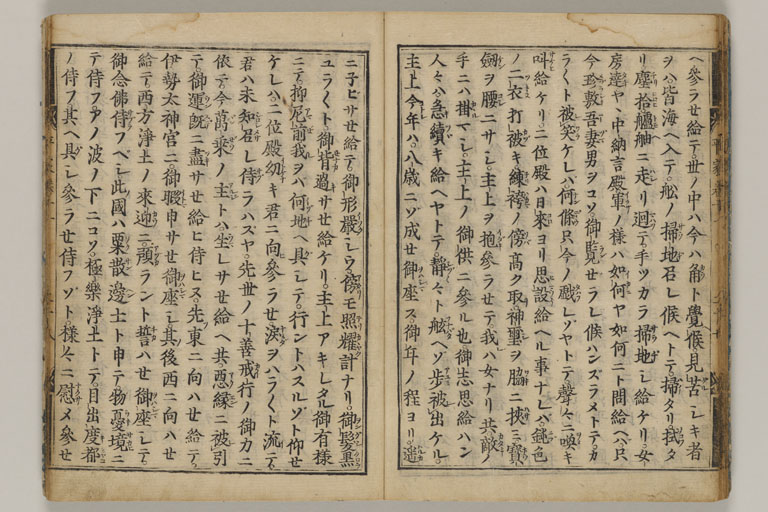 ヘ參ラセ給テ世ノ中ハ今ハ角ト覺候見苦シキ者
ヲハ皆海ヘ入テ舩ノ掃地召レ候ヘトテ掃タリ拭タ
リ塵拾艫舳ニ走リ迴テ手ツカラ掃地シ給ケリ女
房達ヤヽ中納言殿軍ノ樣ハ如何ヤ如何ニト問給ヘハ只
今珍敷吾妻男ヲコソ御覧セラレ候ハンズラメトテカ
ラ〱ト被笑ケレハ何條只今ノ戲レソヤトテ聲々ニ喚キ
叫給ケリ二位殿ハ日來ヨリ思設給ヘル事ナレハ鈍色
ノ二衣打被キ練袴ノ傍高ク取神璽ヲ脇ニ挾ミ寶
劔ヲ腰ニサシ主上ヲ抱參ラセテ我ハ女ナリ共敵ノ
手ニハ掛マシ主上ノ御供ニ參ル也御志思給ハン
人々ハ急續キ給ヘヤトテ靜々ト舷ヘソ歩被出ケル
主上今年ハ八歳ニソ成セ御座ス御年ノ程ヨリ遥
ニ子ヒサセ給テ御形嚴シウ傍モ照耀計ナリ御髮黒
ユラ〱ト御背過サセ給ケリ主上アキレタル御有樣
ニテ抑尼前我ヲハ何地ヘ具シテ行ントハスルソト仰セ
ケレハ二位殿幼キ君ニ向參ラセ涙ヲハラ〱ト流テ
君ハ未知召レ侍ラハズヤ先世ノ十善戒行ノ御力ニ
依テ今萬乗ノ主トハ生レサセ給ヘ共悪縁ニ被引
テ御運既ニ盡サセ給ヒ侍ヒヌ先東ニ向ハセ給テ
伊勢太神宮ニ御暇申サセ御座シ其後西ニ向ハセ
給テ西方淨土ノ來迎ニ預ラント誓ハせ御座シテ
御念佛侍フヘシ此國ハ粟散邊土ト申テ物憂境ニ
テ侍フアノ波ノ下ニコソ極樂淨土トテ目出度都
ノ侍フ其ヘ具シ參ラセ侍フソト樣々ニ慰メ參セ